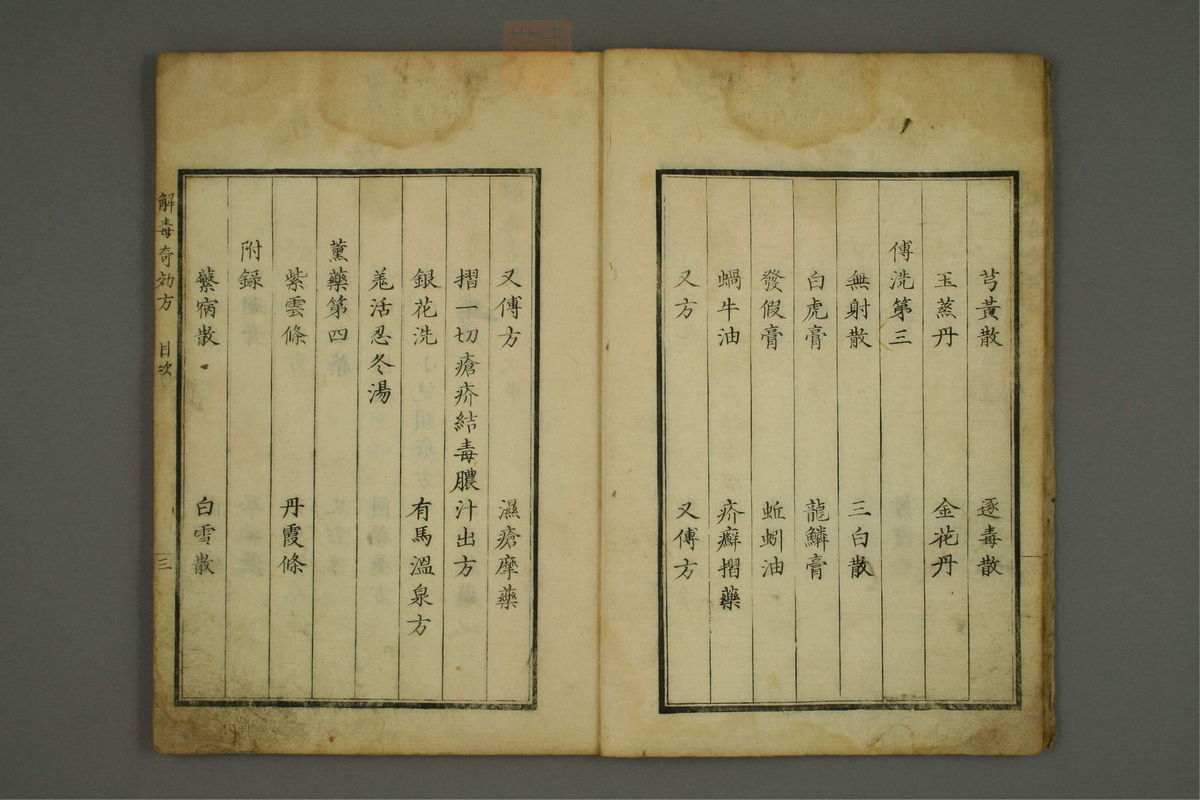 芎黃散 逐毒散
玉蒸丹 金花丹
傅洗第三
無射散 三白散
白虎膏 龍鱗膏
發假膏 蚯蚓油
蝸牛油 疥癬摺藥
又方 又傅方
又傅方 濕瘡摩藥
摺一切瘡疥結毒膿汁出方
銀花洗 有馬溫泉方
羗活忍冬湯
薰藥第四
紫雲條 丹霞條
附錄
癸病散 白雪散
解毒奇効方 目次 三